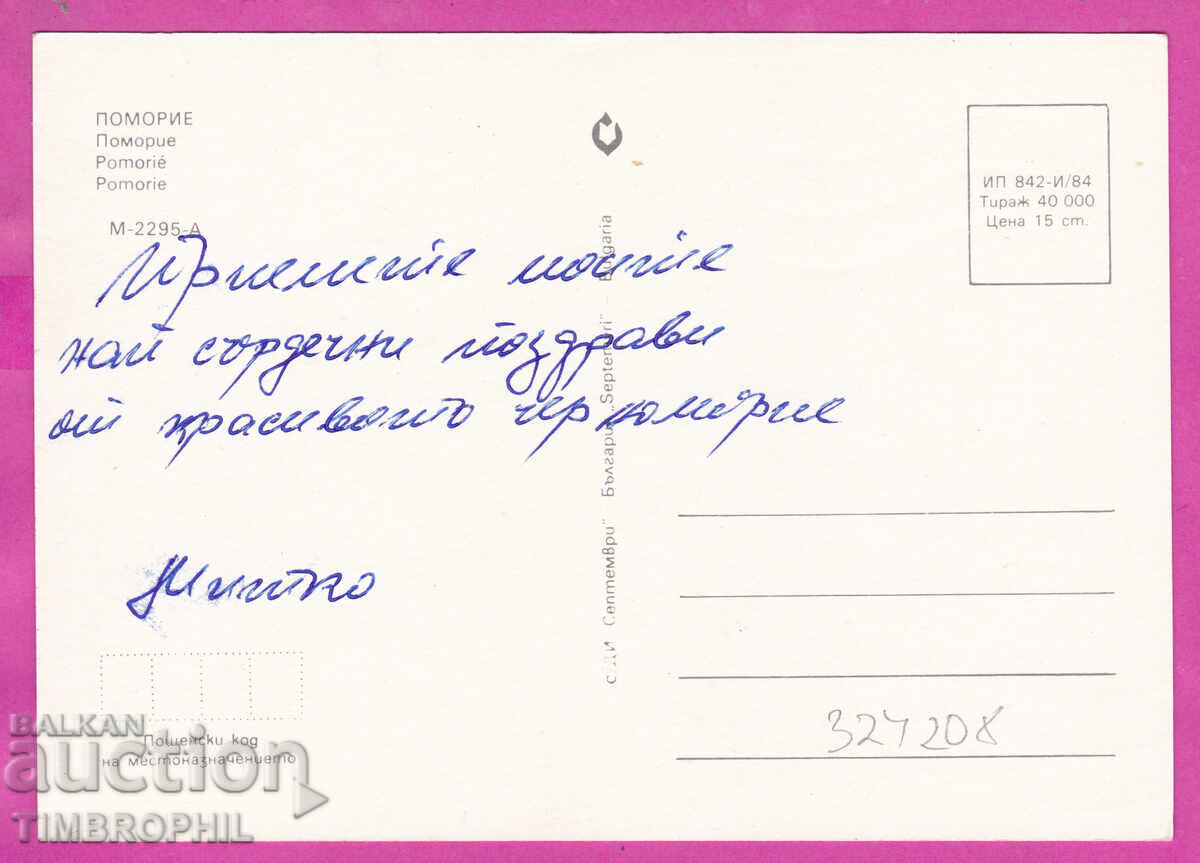 ПОМОРИЕ
Поморие
Pomorié
Pomorie
М-2295-А
ИП 842-И/84
Тираж 40 000
Цена 15 ст.
Приемете моите
най сърдечни поздрави
от красивото черноморие
Митко
СЕДИ „Септември" България „Septemvri" – Bulgaria
Пощенски код
на местоназначението
324208
BALKAN
auction
TIMBROPHIL